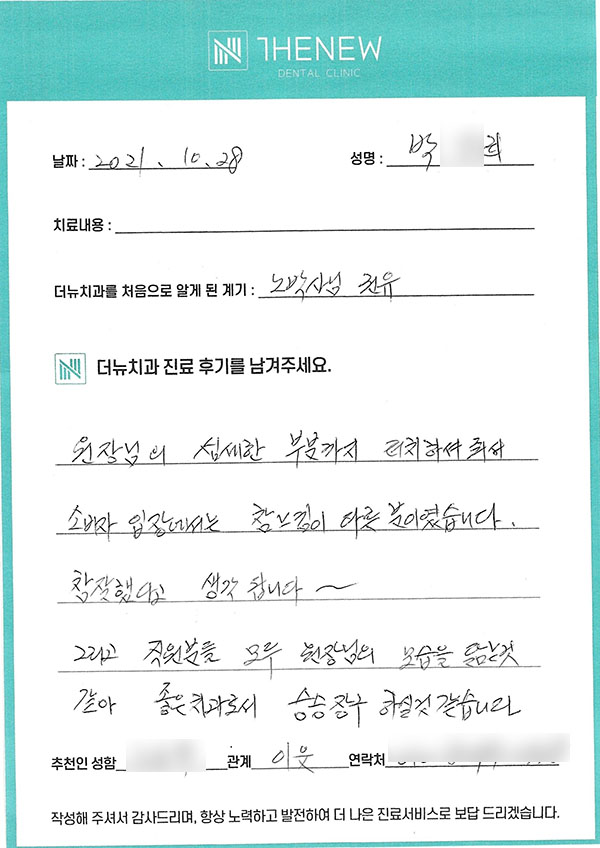 THENEW
DENTAL CLINIC
날짜 : 2021. 10. 28 성명 : 박 희
치료내용 :
더뉴치과를 처음으로 알게 된 계기 : 노박사님 권유
더뉴치과 진료 후기를 남겨주세요.
원장님의 섬세한 부분까지 터치하셔
소비자 입장에서는 참 느낌이 다른 분이였습니다.
참 잘했다고 생각 합니다 ~
그리고 직원분들 모두 원장님의 모습을 닮는것
같아 좋은 치과로서 승승장구 하실것 같습니다
추천인 성함 관계 이웃 연락처
작성해 주셔서 감사드리며, 항상 노력하고 발전하여 더 나은 진료서비스로 보답 드리겠습니다.